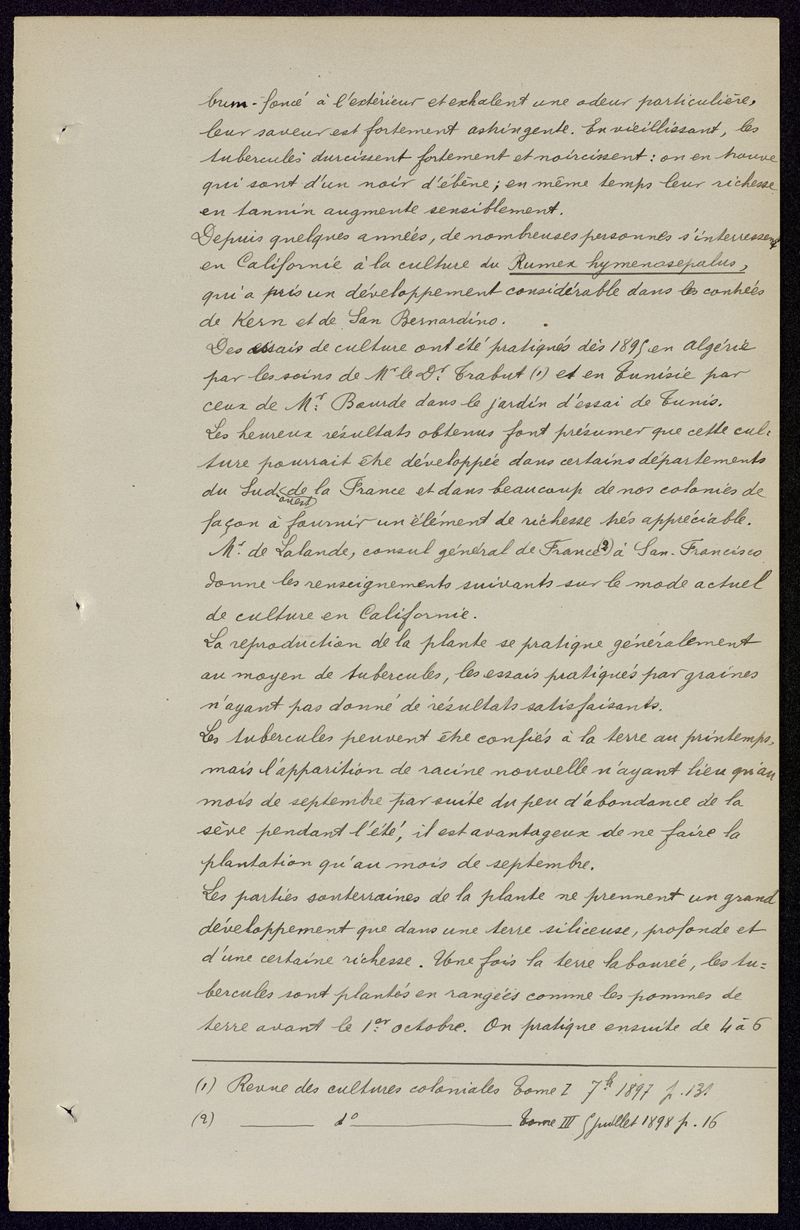 brun-foncé à l'extérieur et exhalent une odeur particulière,
leur saveur est fortement astringente. En vieillissant, les
tubercules durcissent fortement et noircissent : on en trouve
qui sont d'un noir d'ébène ; en même temps leur richesse
en tannin augmente sensiblement.
Depuis quelques années, de nombreuses personnes s'interressent
en Californie à la culture du Rumex hymenosepalus,
qui a pris un développement considérable dans les contrées
de Kern et de San Bernardino.
Des essais de culture ont été pratiqués dès 1895 en Algérie
par les soins de Mr le Dr. Trabut (1) et en Tunisie par
ceux de Mr. Bourde dans le jardin d'essai de Tunis.
Les heureux résultats obtenus font présumer que cette cul-
ture pourrait être développée dans certains départements
du Sud ouest de la France et dans beaucoup de nos colonies de
façon à fournir un élément de richesse très appréciable.
Mr. de Lalande, consul général de France (2) à San-Francisco
donne les renseignements suivants sur le mode actuel
de culture en Californie.
La reproduction de la plante se pratique généralement
au moyen de tubercules, les essais pratiqués par graines
n'ayant pas donné de résultats satisfaisants.
Les tubercules peuvent être confiés à la terre au printemps,
mais l'apparition de racine nouvelle n'ayant lieu qu'au
mois de septembre par suite du peu d'abondance de la
sève pendant l'été, il est avantageux de ne faire la
plantation qu'au mois de septembre.
Les parties souterraines de la plante ne prennent un grand
développement que dans une terre siliceuse, profonde et
d'une certaine richesse. Une fois la terre labourée, les tu=
bercules sont plantés en rangées comme les pommes de
terre avant le 1er octobre. On pratique ensuite de 4 à 6
(1) Revue des cultures coloniales Tome I 7b 1897 p. 131
(2) — do — Tome III 5 juillet 1898 p. 16